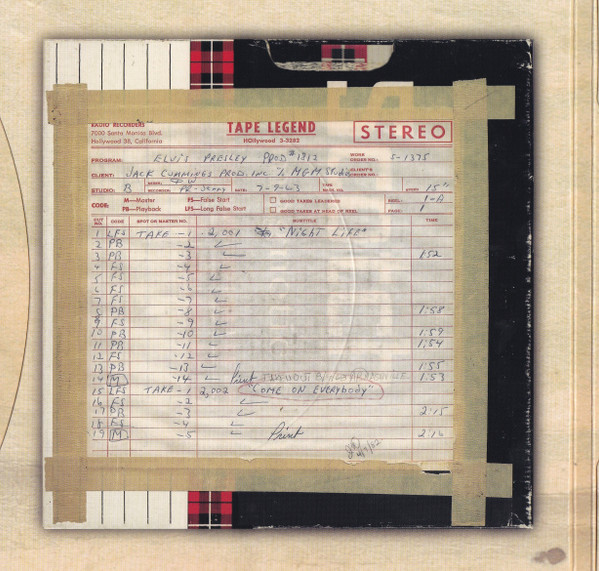 RADIO RECORDERS
7000 Santa Monica Blvd.
Hollywood 38, California
TAPE LEGEND
HOllywood 3-3282
STEREO
PROGRAM: ELVIS PRESLEY PROD# 1312 WORK ORDER NO. 5-1375
CLIENT: JACK CUMMINGS PROD. INC % MGM STUDIO CLIENT'S ORDER NO.
STUDIO: B RECORDER: DATE: 7-9-63 SPEED 15"
CODE: M—Master FS—False Start GOOD TAKES LEADERED REEL: 1-A
PB—Playback LFS—Long False Start GOOD TAKES AT HEAD OF REEL PAGE: 1
CODE SPOT OR MASTER NO. SUBTITLE TIME
1 LFS TAKE -1 2,001 "NIGHT LIFE"
2 PB -2 ✓
3 PB -3 ✓ 1:52
4 FS -4 ✓
5 FS -5 ✓
6 FS -6 ✓
7 FS -7 ✓
8 PB -8 ✓ 1:58
9 FS -9 ✓
10 PB -10 ✓ 1:59
11 PB -11 ✓ 1:54
12 FS -12 ✓
13 PB -13 ✓ 1:55
14 M -14 ✓ Print 1:53
15 LFS TAKE -1 2,002 "COME ON EVERYBODY"
16 FS -2 ✓
17 PB -3 ✓ " 2:15
18 FS -4 ✓
19 M -5 ✓ Print 2:16